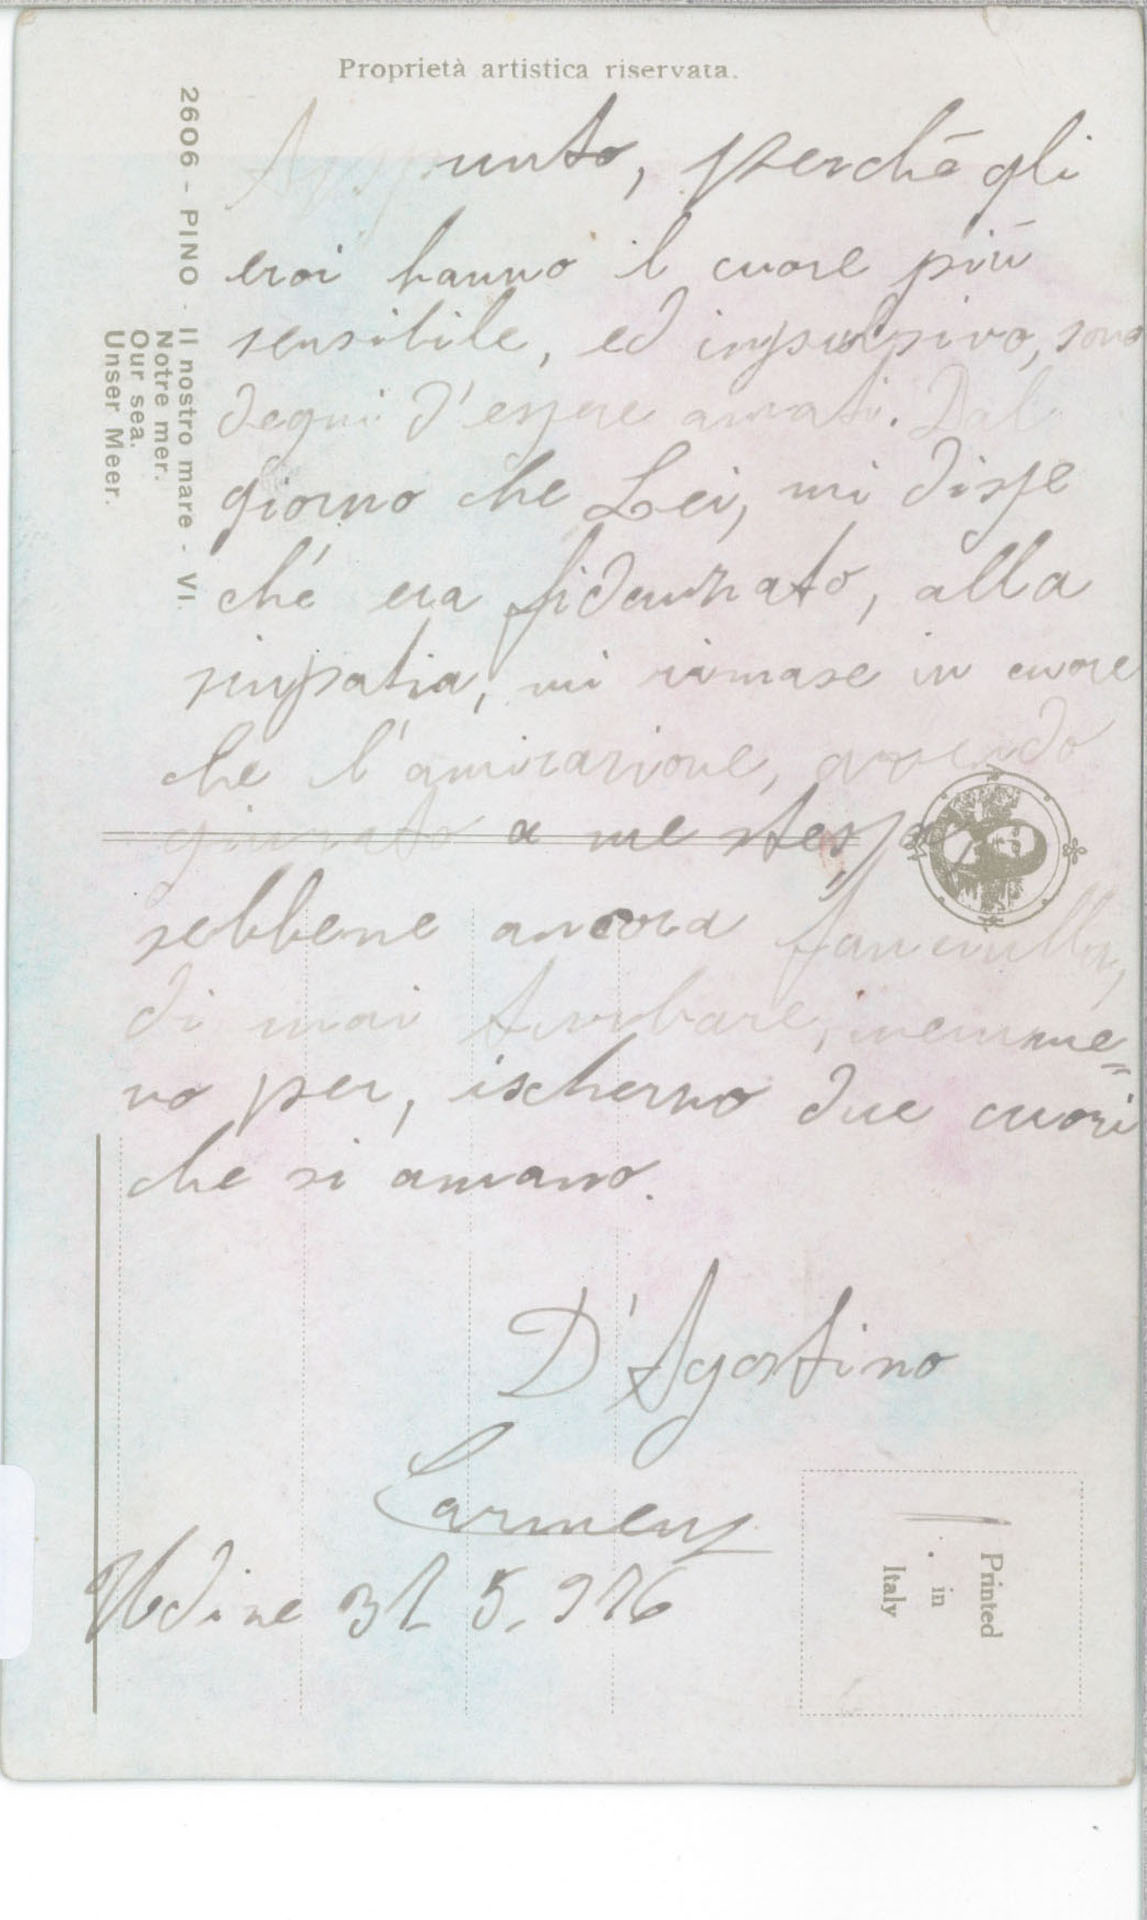 Proprietà artistica riservata.
2606 - PINO - Il nostro mare - VI.
Notre mer.
Our sea.
Unser Meer.
Appunto, perchè gli
eroi hanno il cuore più
sensibile, ed inpulsivo, sono
degni d'essere amati. Dal
giorno che Lei, mi disse
ch'è era fidanzato, alla
simpatia, mi rimase in cuore
che l'amirazione, avendo
giurato a me stessa
sebbene ancora fanciulla,
di mai turbare, nemme=
no per, ischerno due cuori
che si amano.
D'Agostino
Carmen
Udine 31 5. 916
Printed
in
Italy